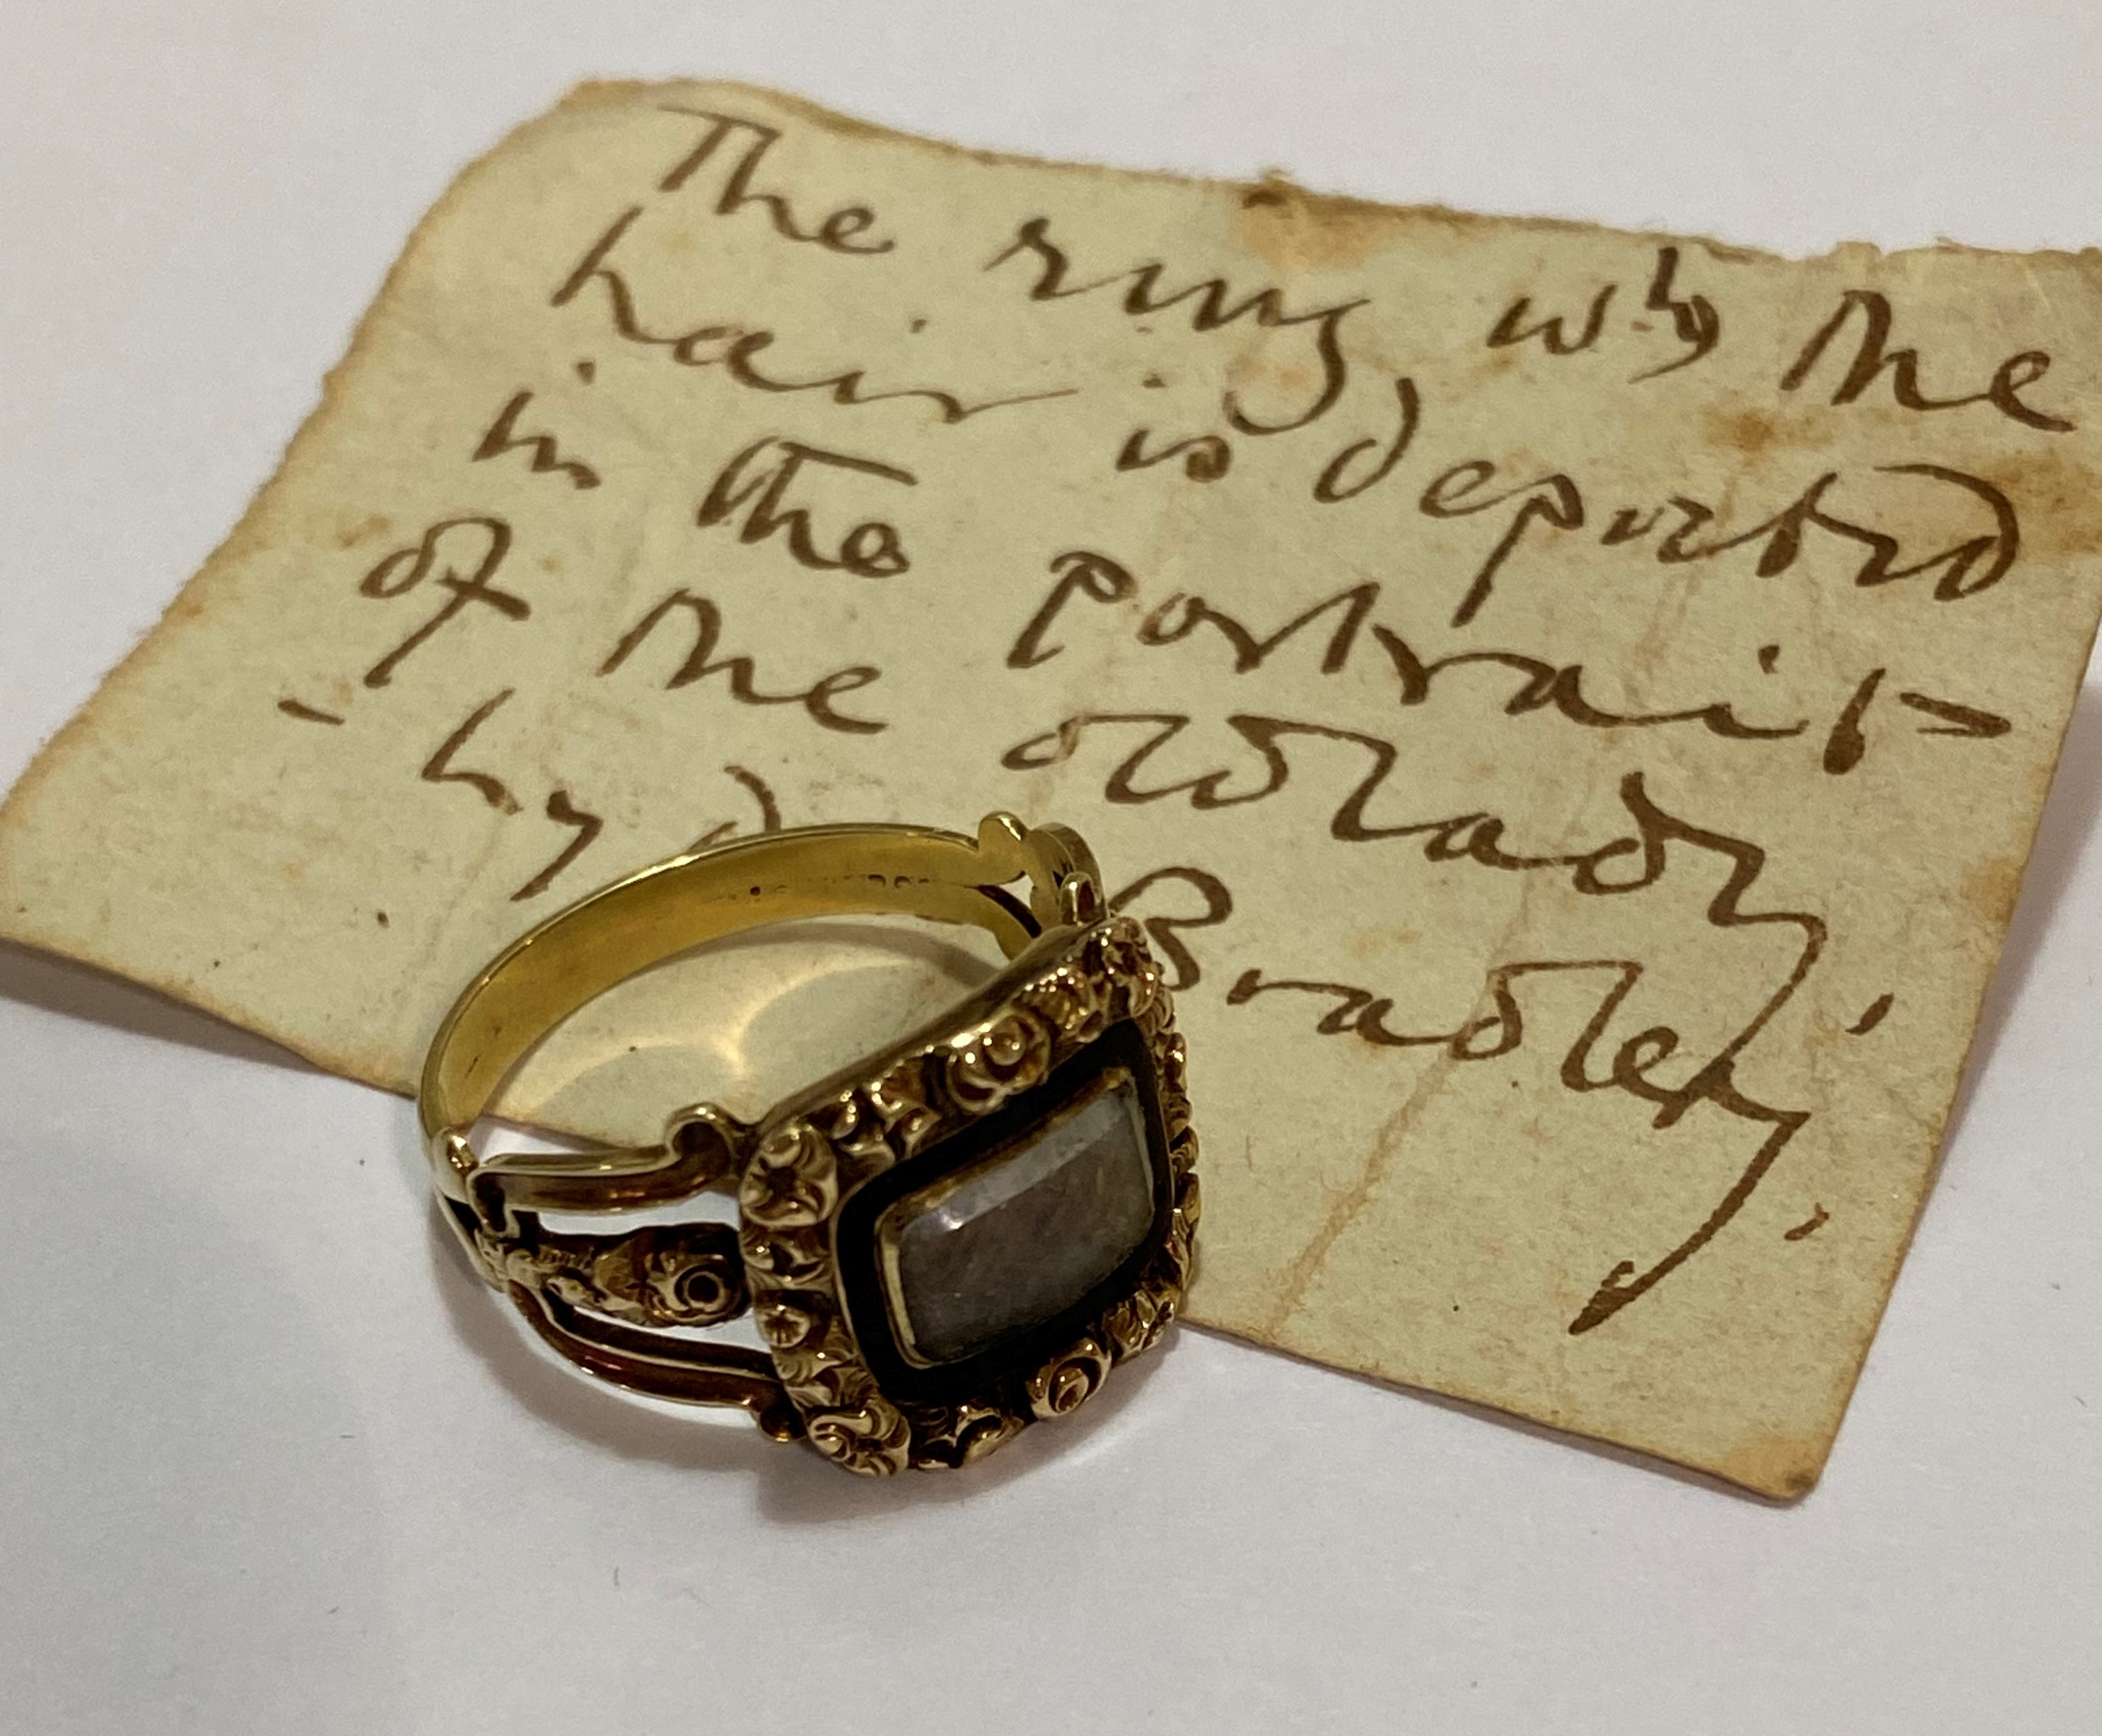 The ring wth the
hair is depicted
in the portrait
of the old lady
- by Bradley